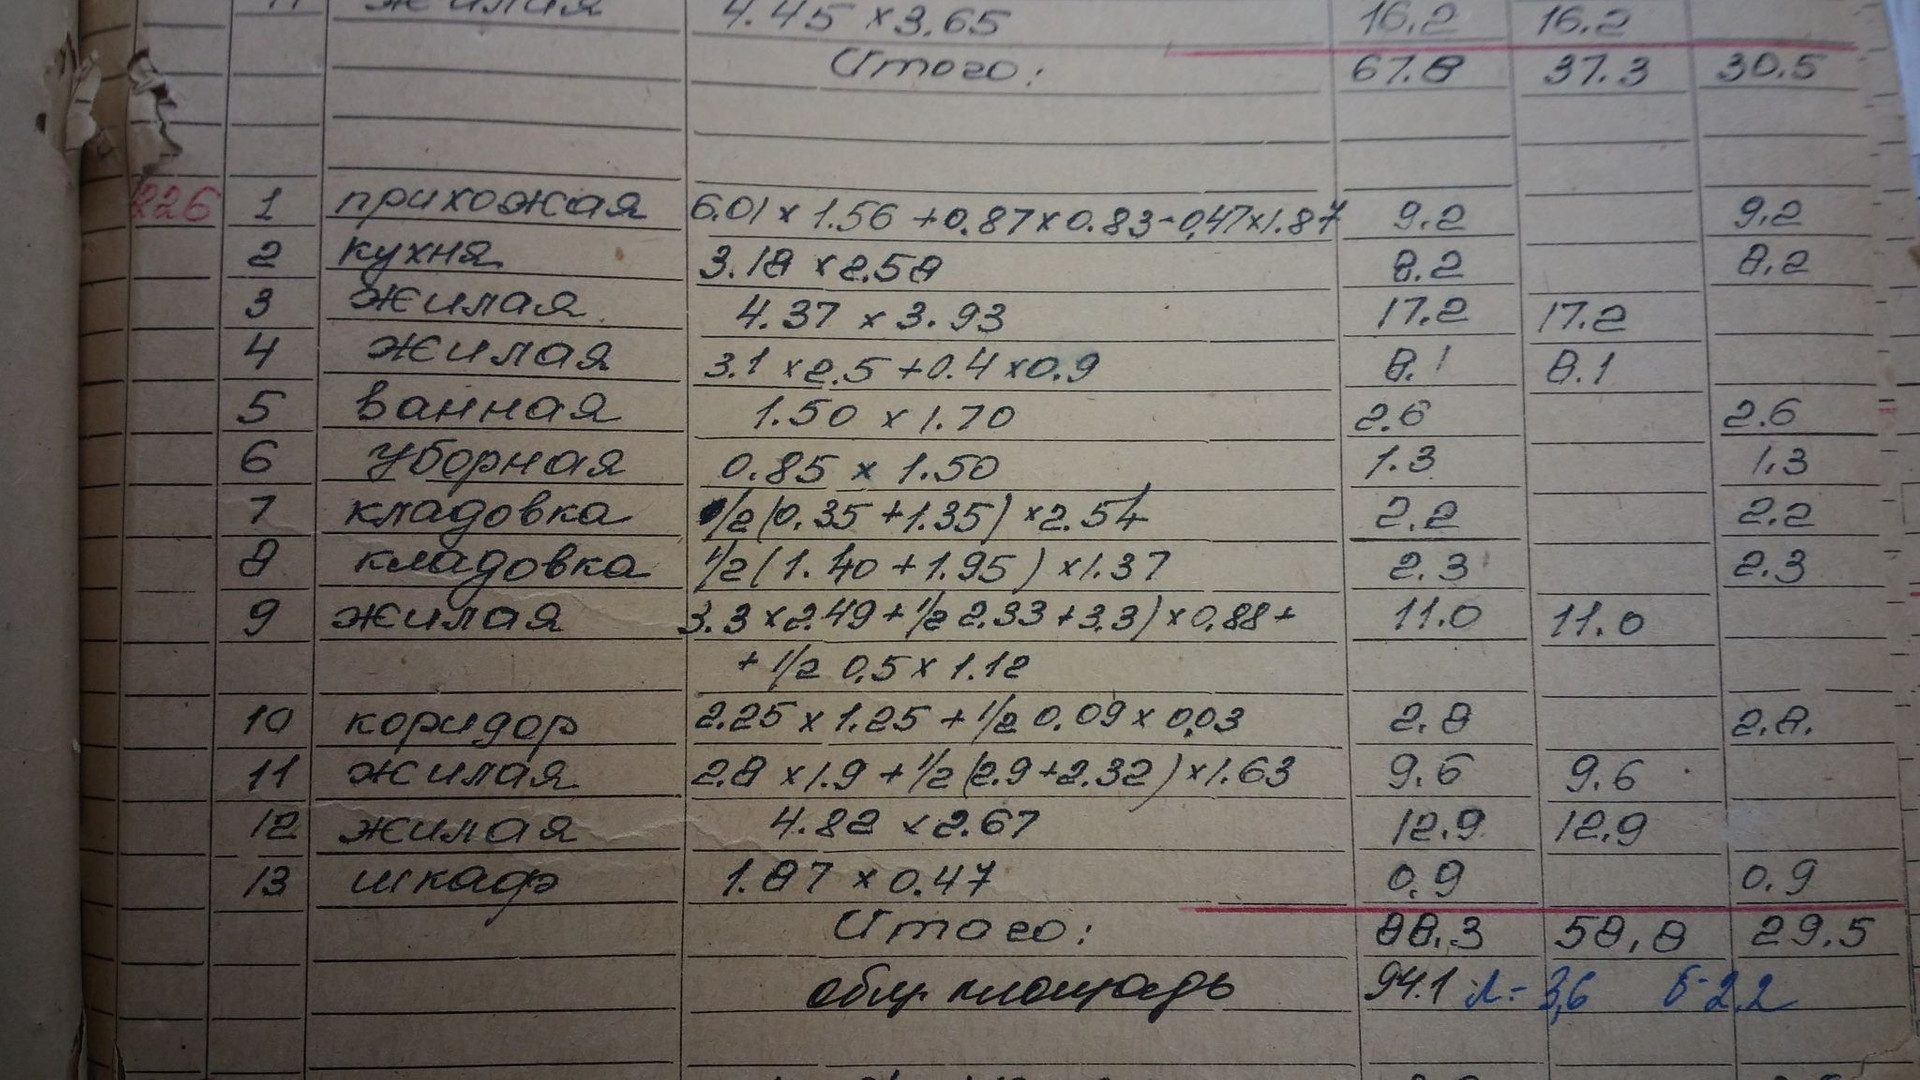 жилая 4.45 x 3.65 16.2 16.2
Итого: 67.8 37.3 30.5
226 1 прихожая 6.01 x 1.56 + 0.87 x 0.83 - 0.47 x 1.87 9.2 9.2
2 кухня 3.18 x 2.58 8.2 8.2
3 жилая 4.37 x 3.93 17.2 17.2
4 жилая 3.1 x 2.5 + 0.4 x 0.9 8.1 8.1
5 ванная 1.50 x 1.70 2.6 2.6
6 уборная 0.85 x 1.50 1.3 1.3
7 кладовка 1/2 (0.35 + 1.35) x 2.54 2.2 2.2
8 кладовка 1/2 (1.40 + 1.95) x 1.37 2.3 2.3
9 жилая 3.3 x 2.49 + 1/2 2.33 + 3.3) x 0.88 + 11.0 11.0
+ 1/2 0.5 x 1.12
10 коридор 2.25 x 1.25 + 1/2 0.09 x 0.03 2.8 2.8.
11 жилая 2.8 x 1.9 + 1/2 (2.9 + 2.32) x 1.63 9.6 9.6
12 жилая 4.82 x 2.67 12.9 12.9
13 шкаф 1.87 x 0.47 0.9 0.9
Итого: 88.3 58.8 29.5
общ. площадь 94.1 л - 3,6 б - 2,2